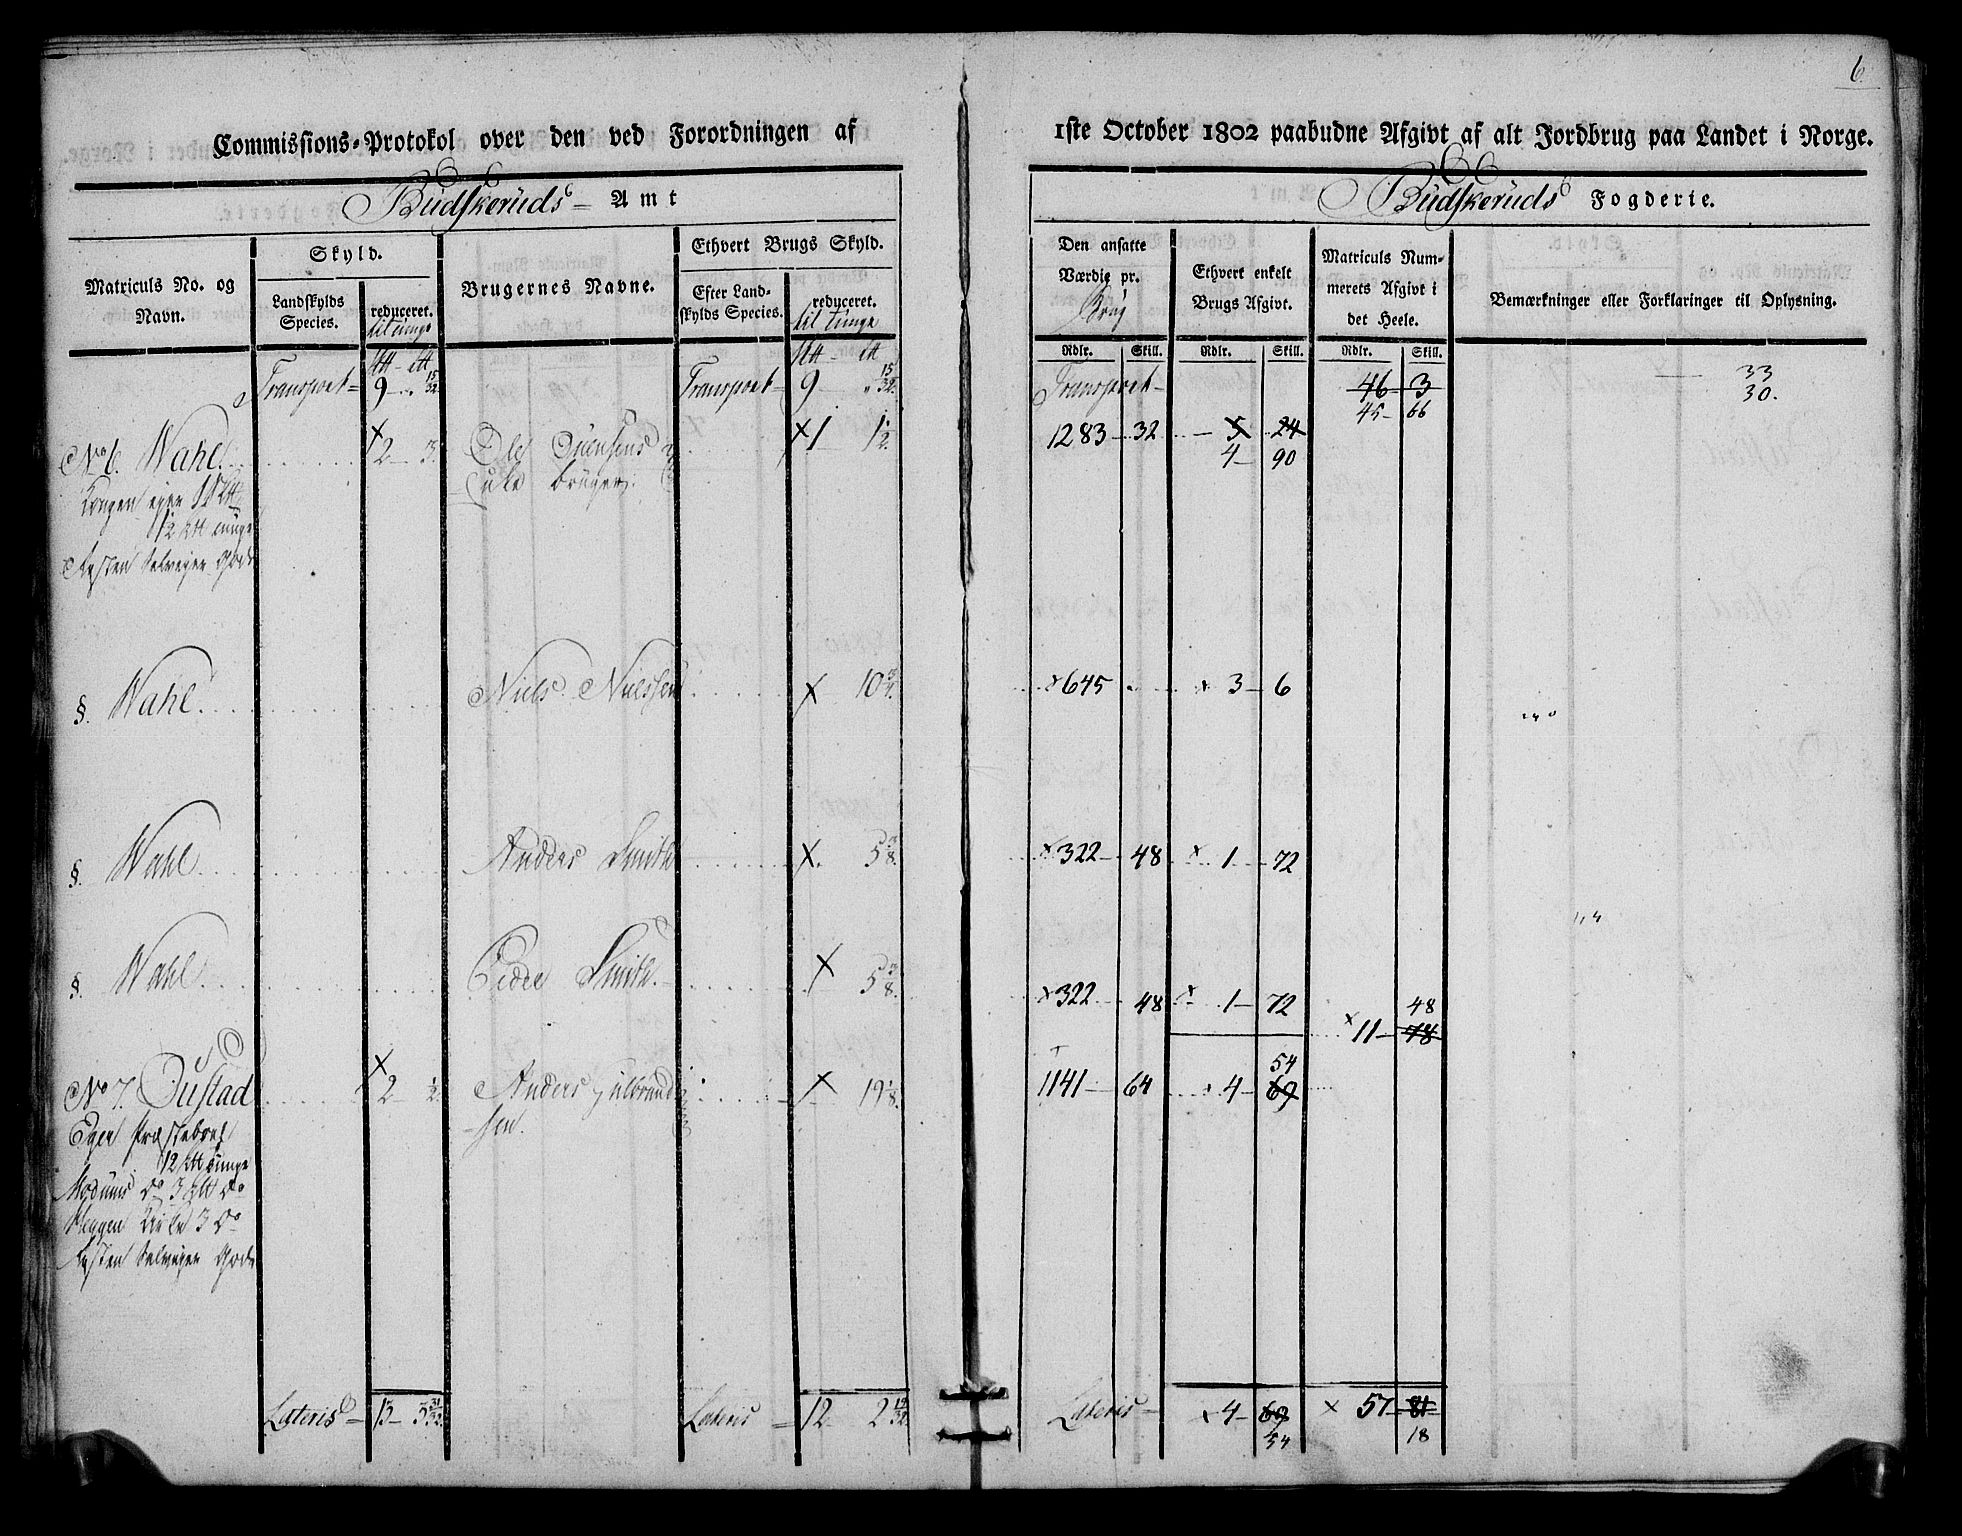 6
Commissions-Protokol over den ved Forordningen af 1ste October 1802 paabudne Afgivt af alt Jordbrug paa Landet i Norge.
Budskeruds Amt
Budskeruds Fogderie.
Matriculs No. og Navn.
Skyld.
Landskylds Species.
reduceret.
til tunge
Brugernes Navne.
Ethvert Brugs Skyld.
Efter Landskylds Species.
reduceret.
til tunge
Den ansatte Værdie pr.
Brug
Ethvert enkelt Brugs Afgivt.
Matriculs Nummerets Afgivt i det Heele.
Bemærkninger eller Forklaringer til Oplysning.
Rdlr. Skill. Rdlr. Skill. Rdlr. Skill.
Transport 9 15/32 Transport 9 15/32 Transport 46 3 33
45 66 30.
No 6. Wahl 2 3. Ole 1 1 1/2 1283 32 5 24
4 90
Kongen eger
tunge
Resten Selveyer Gods
§. Wahl Niels Nielsen 10 3/4 645 3 6
§. Wahl Anders Smith 5 3/8 322 48 1 72
§. Wahl Peder Smith 5 3/8 322 48 1 72 48
11 78
54
No 7. 2 1/2 Anders 19 1/8 1141 64 4 69
sen.
Eger Præstebord
12 tunge
Modums do 3 do
Heggen Kirke 3 do
Resten Selveyer Gods
Lateris 13 3 31/32 Lateris 12 2 19/32 Lateris 4 69 57 81
54 18